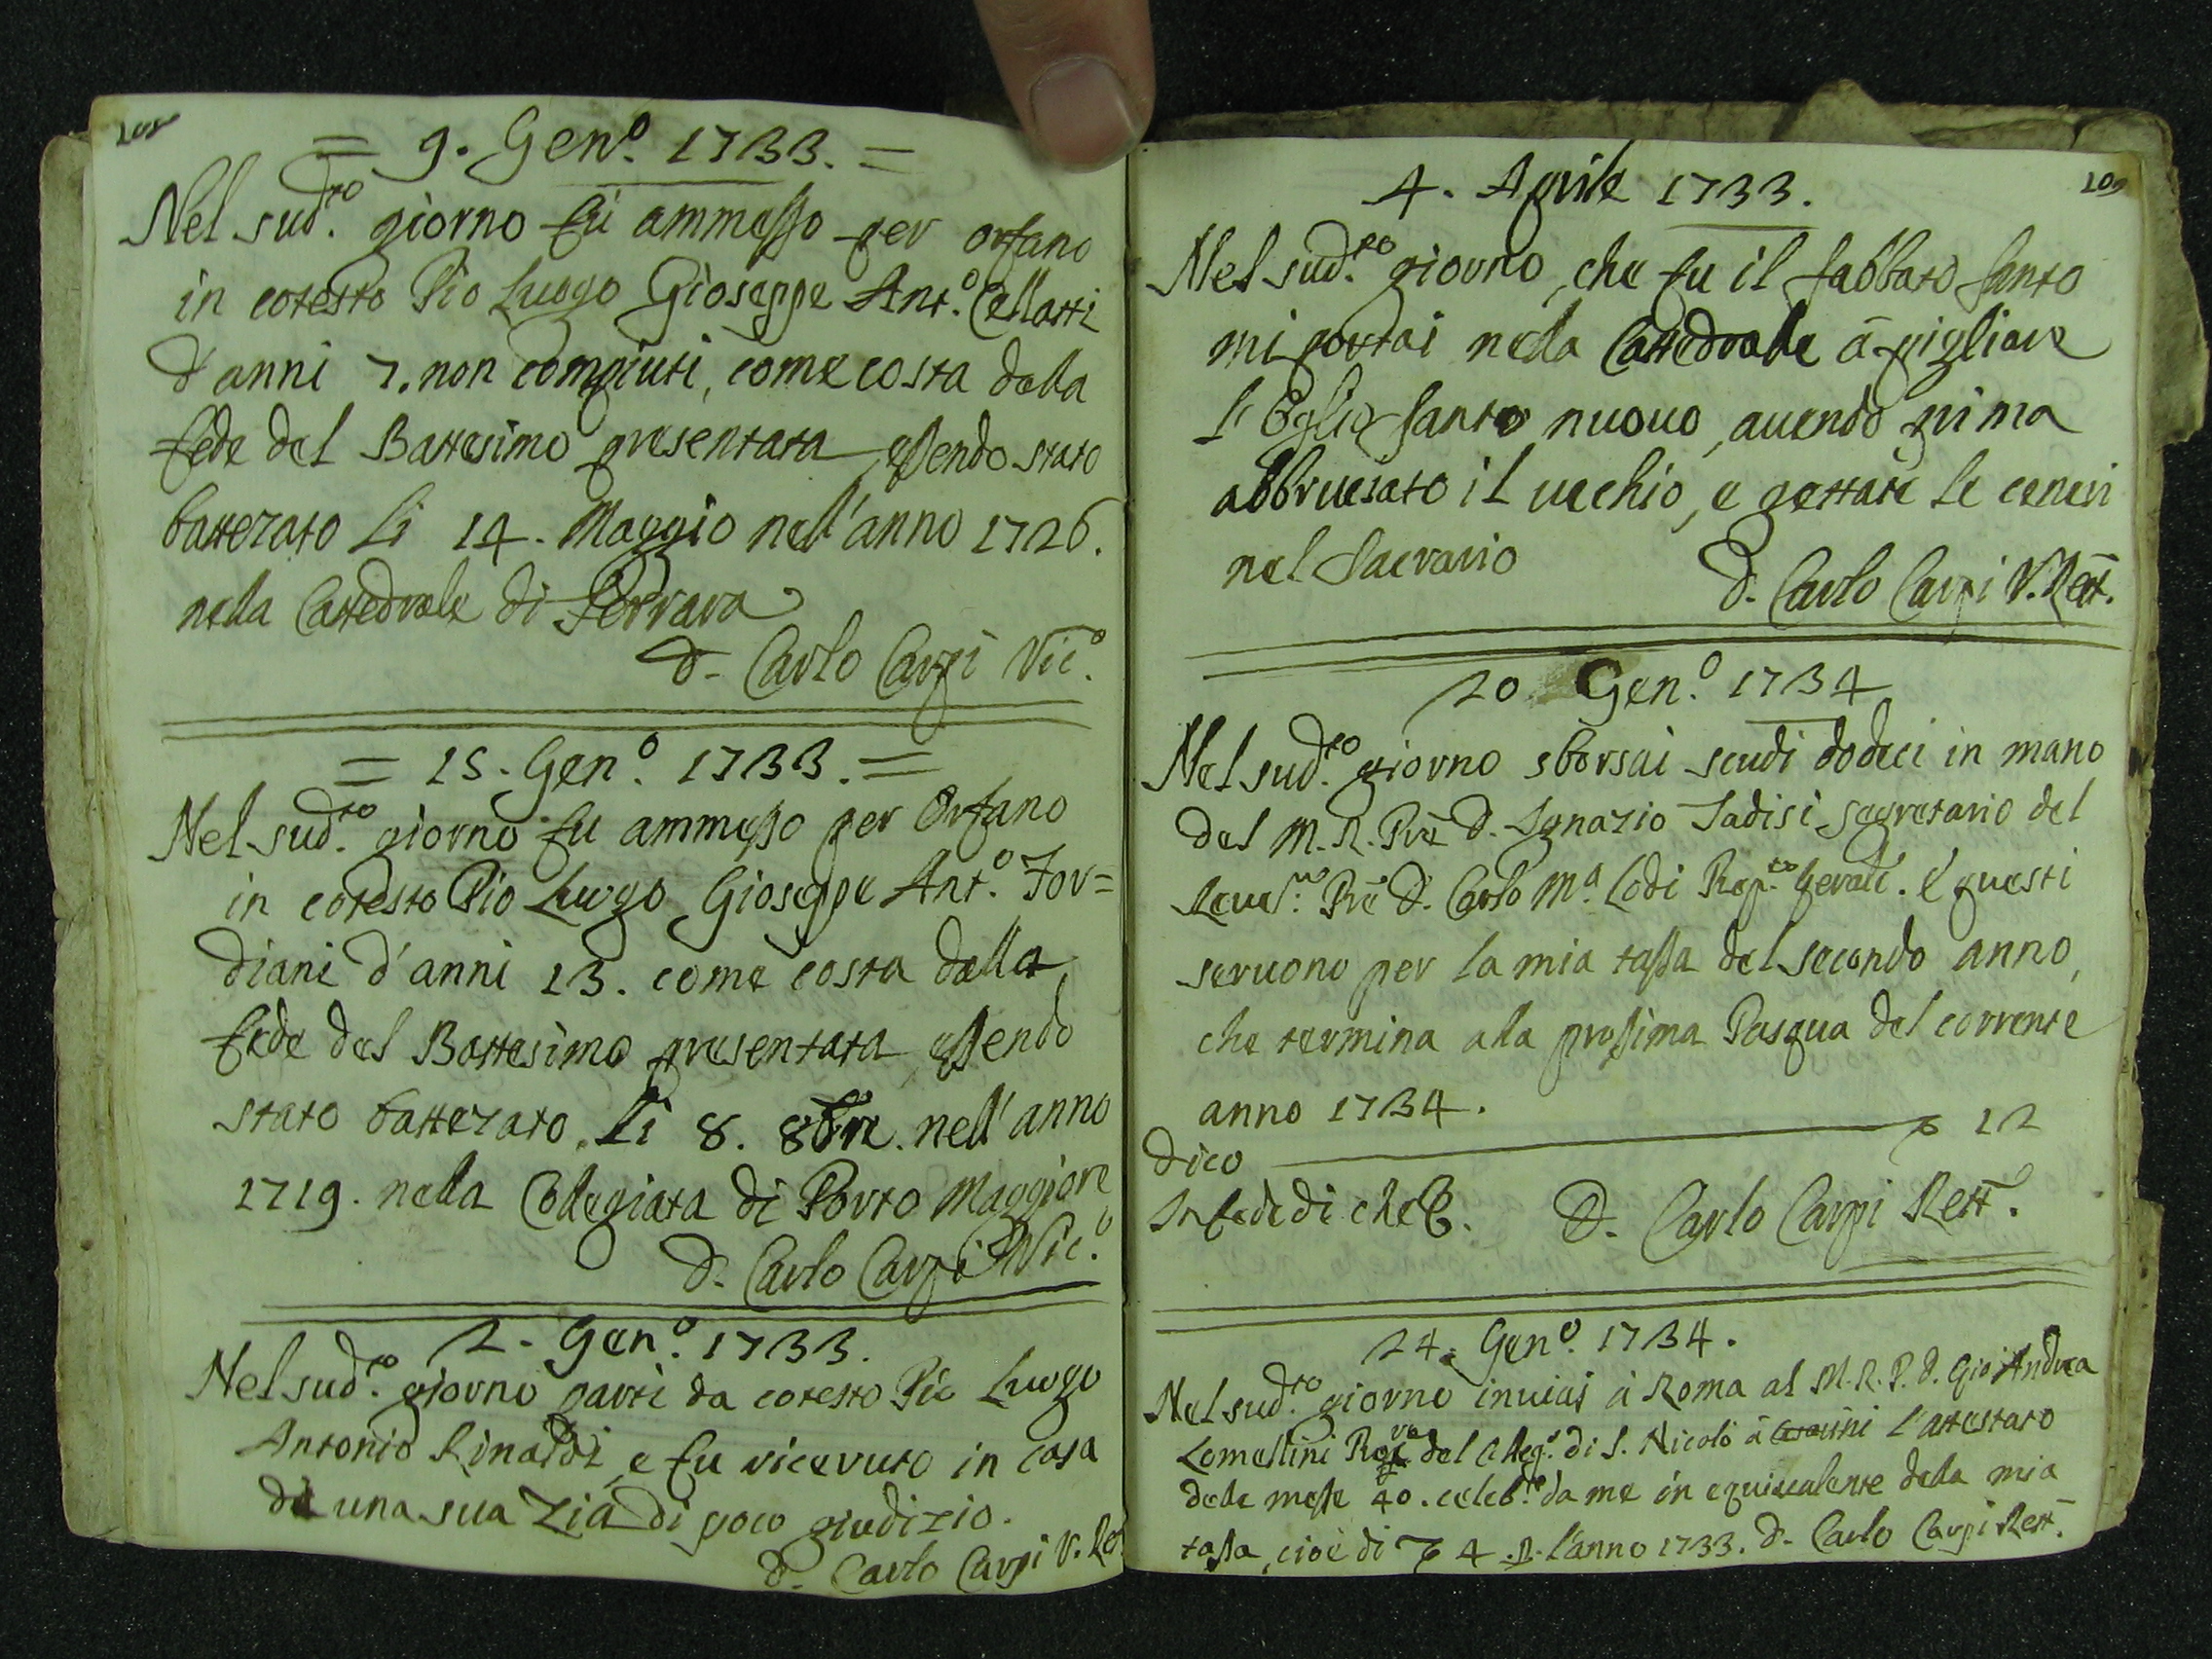 108
= 9. Gen.o 1733. =
Nel sud.to giorno fu ammesso per orfano
in cotesto Pio Luogo Gioseppe Ant.o Cellatti
d'anni 7. non compiuti, come costa dalla
fede del Battesimo presentata, essendo stato
battezato li 14. Maggio nell'anno 1726.
nella Cattedrale di Ferrara
D. Carlo Carpi Vic.o
= 15. Gen.o 1733. =
Nel sud.to giorno fu ammesso per Orfano
in cotesto Pio Luogo Gioseppe Ant.o For=
diani d'anni 13. come costa dalla
fede del Battesimo presentata, essendo
stato battezato li 8. 8bre. nell'anno
1719. nella Collegiata di Porto Maggiore
D. Carlo Carpi Vic.o
2. Gen.o 1733.
Nel sud.to giorno partì da cotesto Pio Luogo
Antonio Rinaldi, e fu ricevuto in casa
di una sua Zia di poco giudizio.
D. Carlo Carpi V. Ret
109
4. Aprile 1733.
Nel sud.to giorno, che fu il sabbato santo
mi portai nella Cattedrale à pigliare
l'Oglio santo nuouo, auendo prima
abbruciato il uechio, e gettate le ceneri
nel Sacrario
D. Carlo Carpi V. Rett.
20 Gen.o 1734
Nel sud.to giorno sborsai scudi dodeci in mano
del M. R. Prē D. Ignazio Tadisi segretario del
Reue.mo Prē D. Carlo M.a Lodi Rep.to Gerale. e questi
seruono per la mia tassa del secondo anno,
che termina alla prossima Pasqua del corrente
anno 1734.
Dico 12
In fede di che D. Carlo Carpi Rett.
24. Gen.o 1734.
Nel sud.to giorno inuiai à Roma al M. R. P. D. Gio Andrea
Lomellini del Colleg.o di S. Nicolò à l'attestato
delle messe 40. celeb.te da me in equiualente della mia
tassa, cioè di 4 p. l'anno 1733. D. Carlo Carpi Rett.